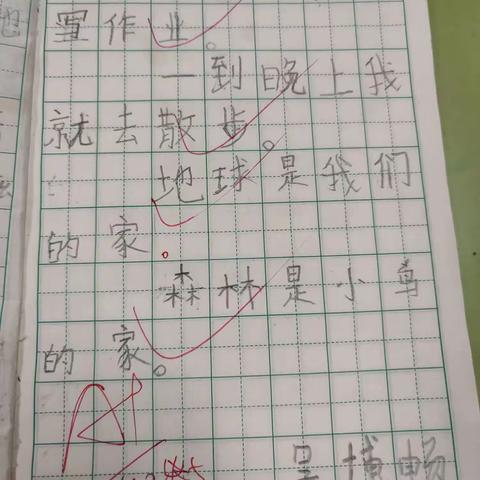 写作业。
一到晚上我
就去散步。
地球是我们
的家。
森林是小鸟
的家。
A+